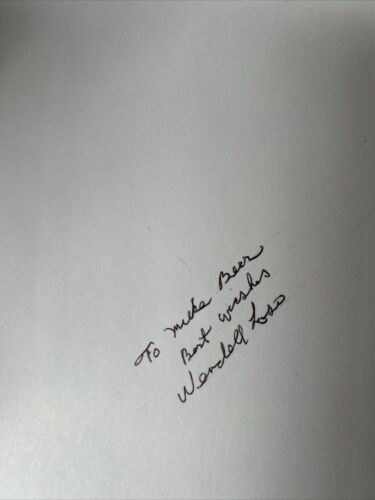 To Mike Beer
Best wishes
Wendell Loso